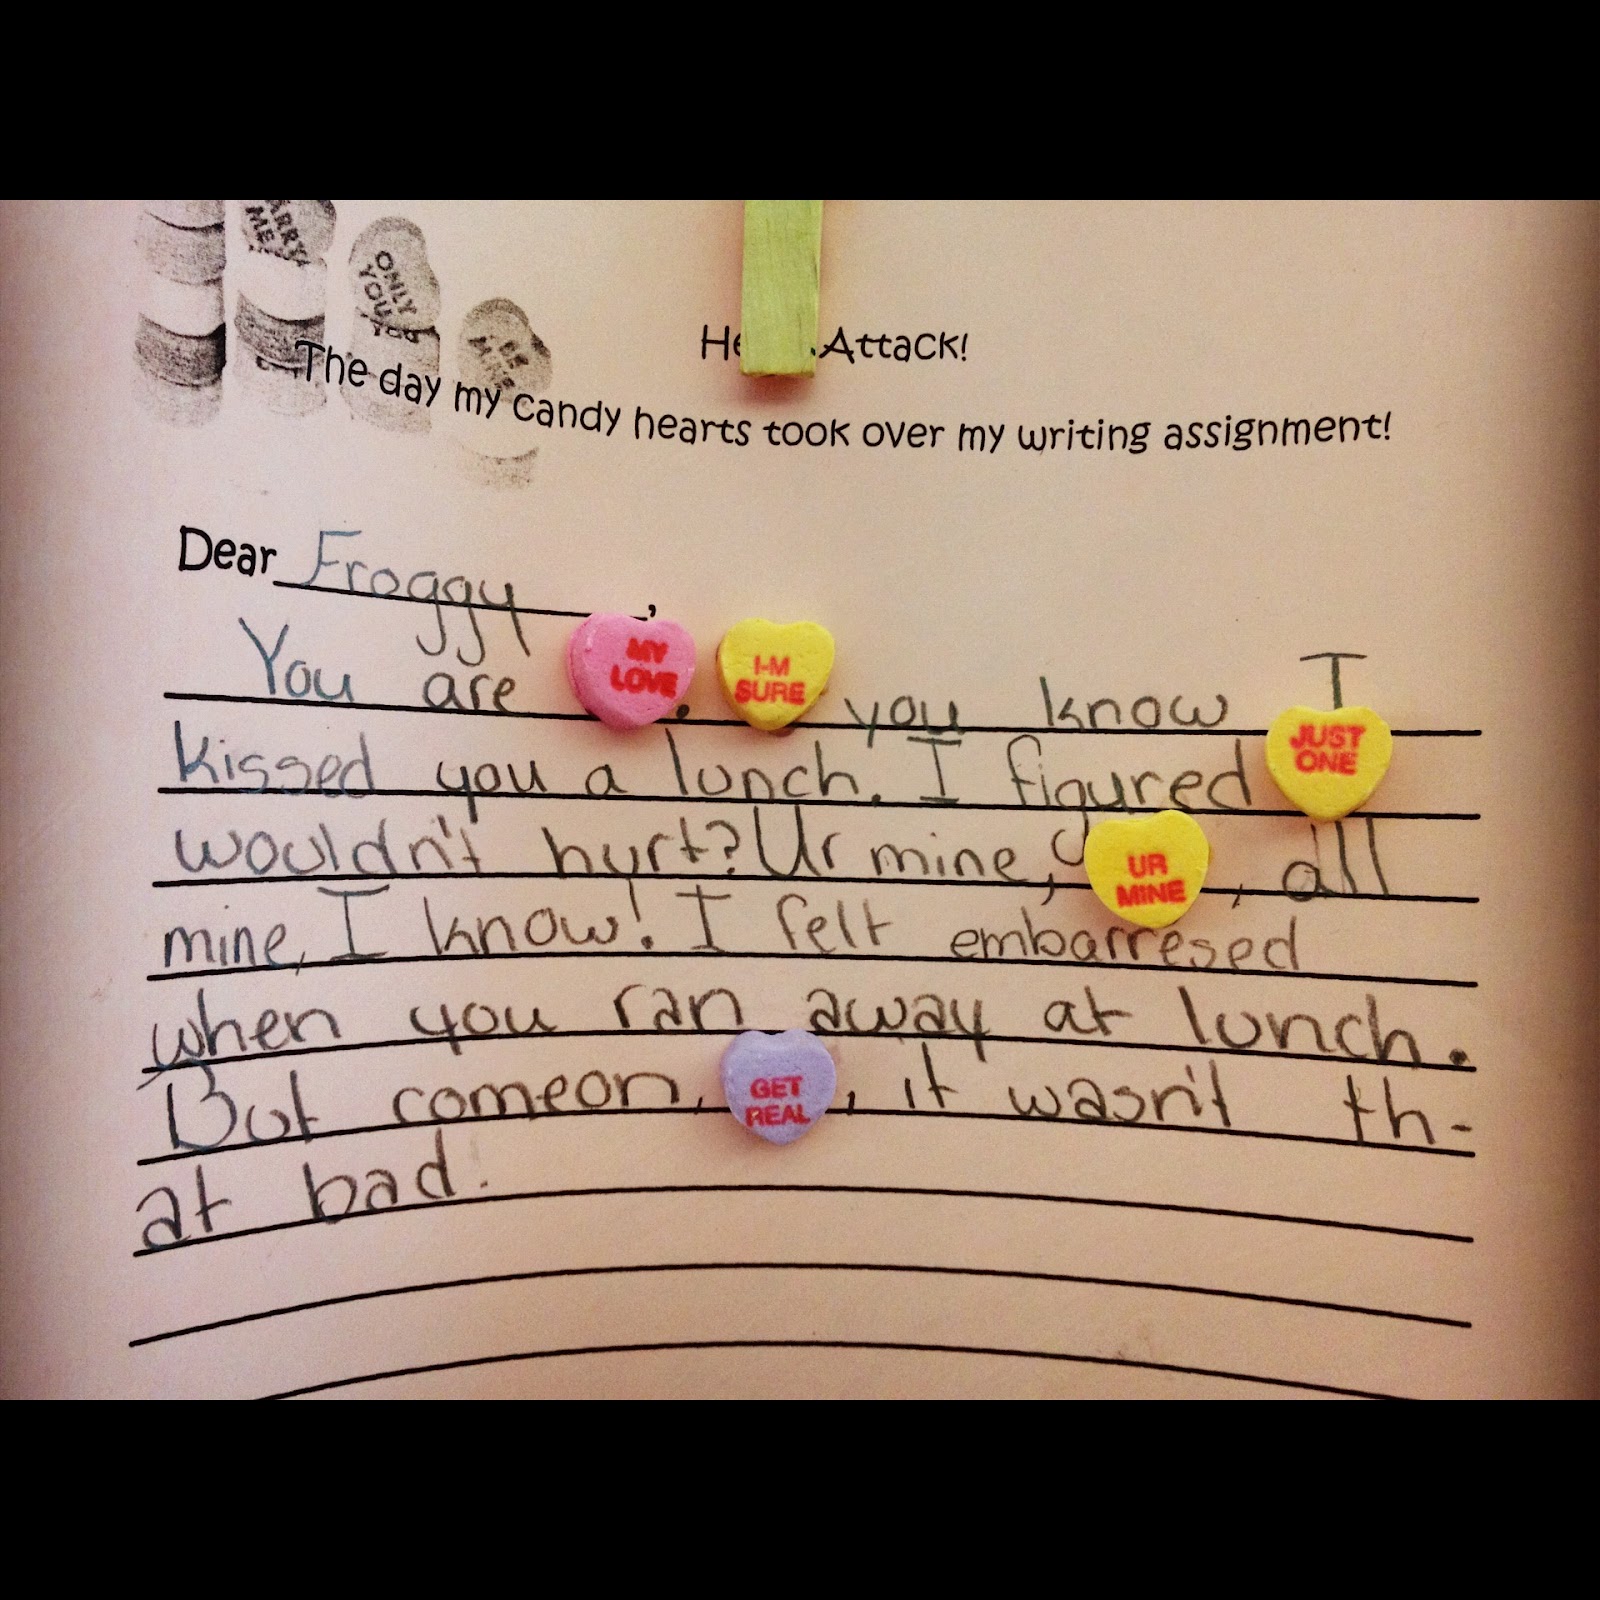 ARRY ME
ONLY YOU
YOU
BE MINE
He Attack!
The day my candy hearts took over my writing assignment!
Dear Froggy,
You are MY LOVE. I-M SURE you know I
kissed you a lunch. I figured JUST ONE
wouldn't hurt? Ur mine, UR MINE, all
mine, I know! I felt embarresed
when you ran away at lunch.
But comeon, GET REAL, it wasn't th-
at bad.